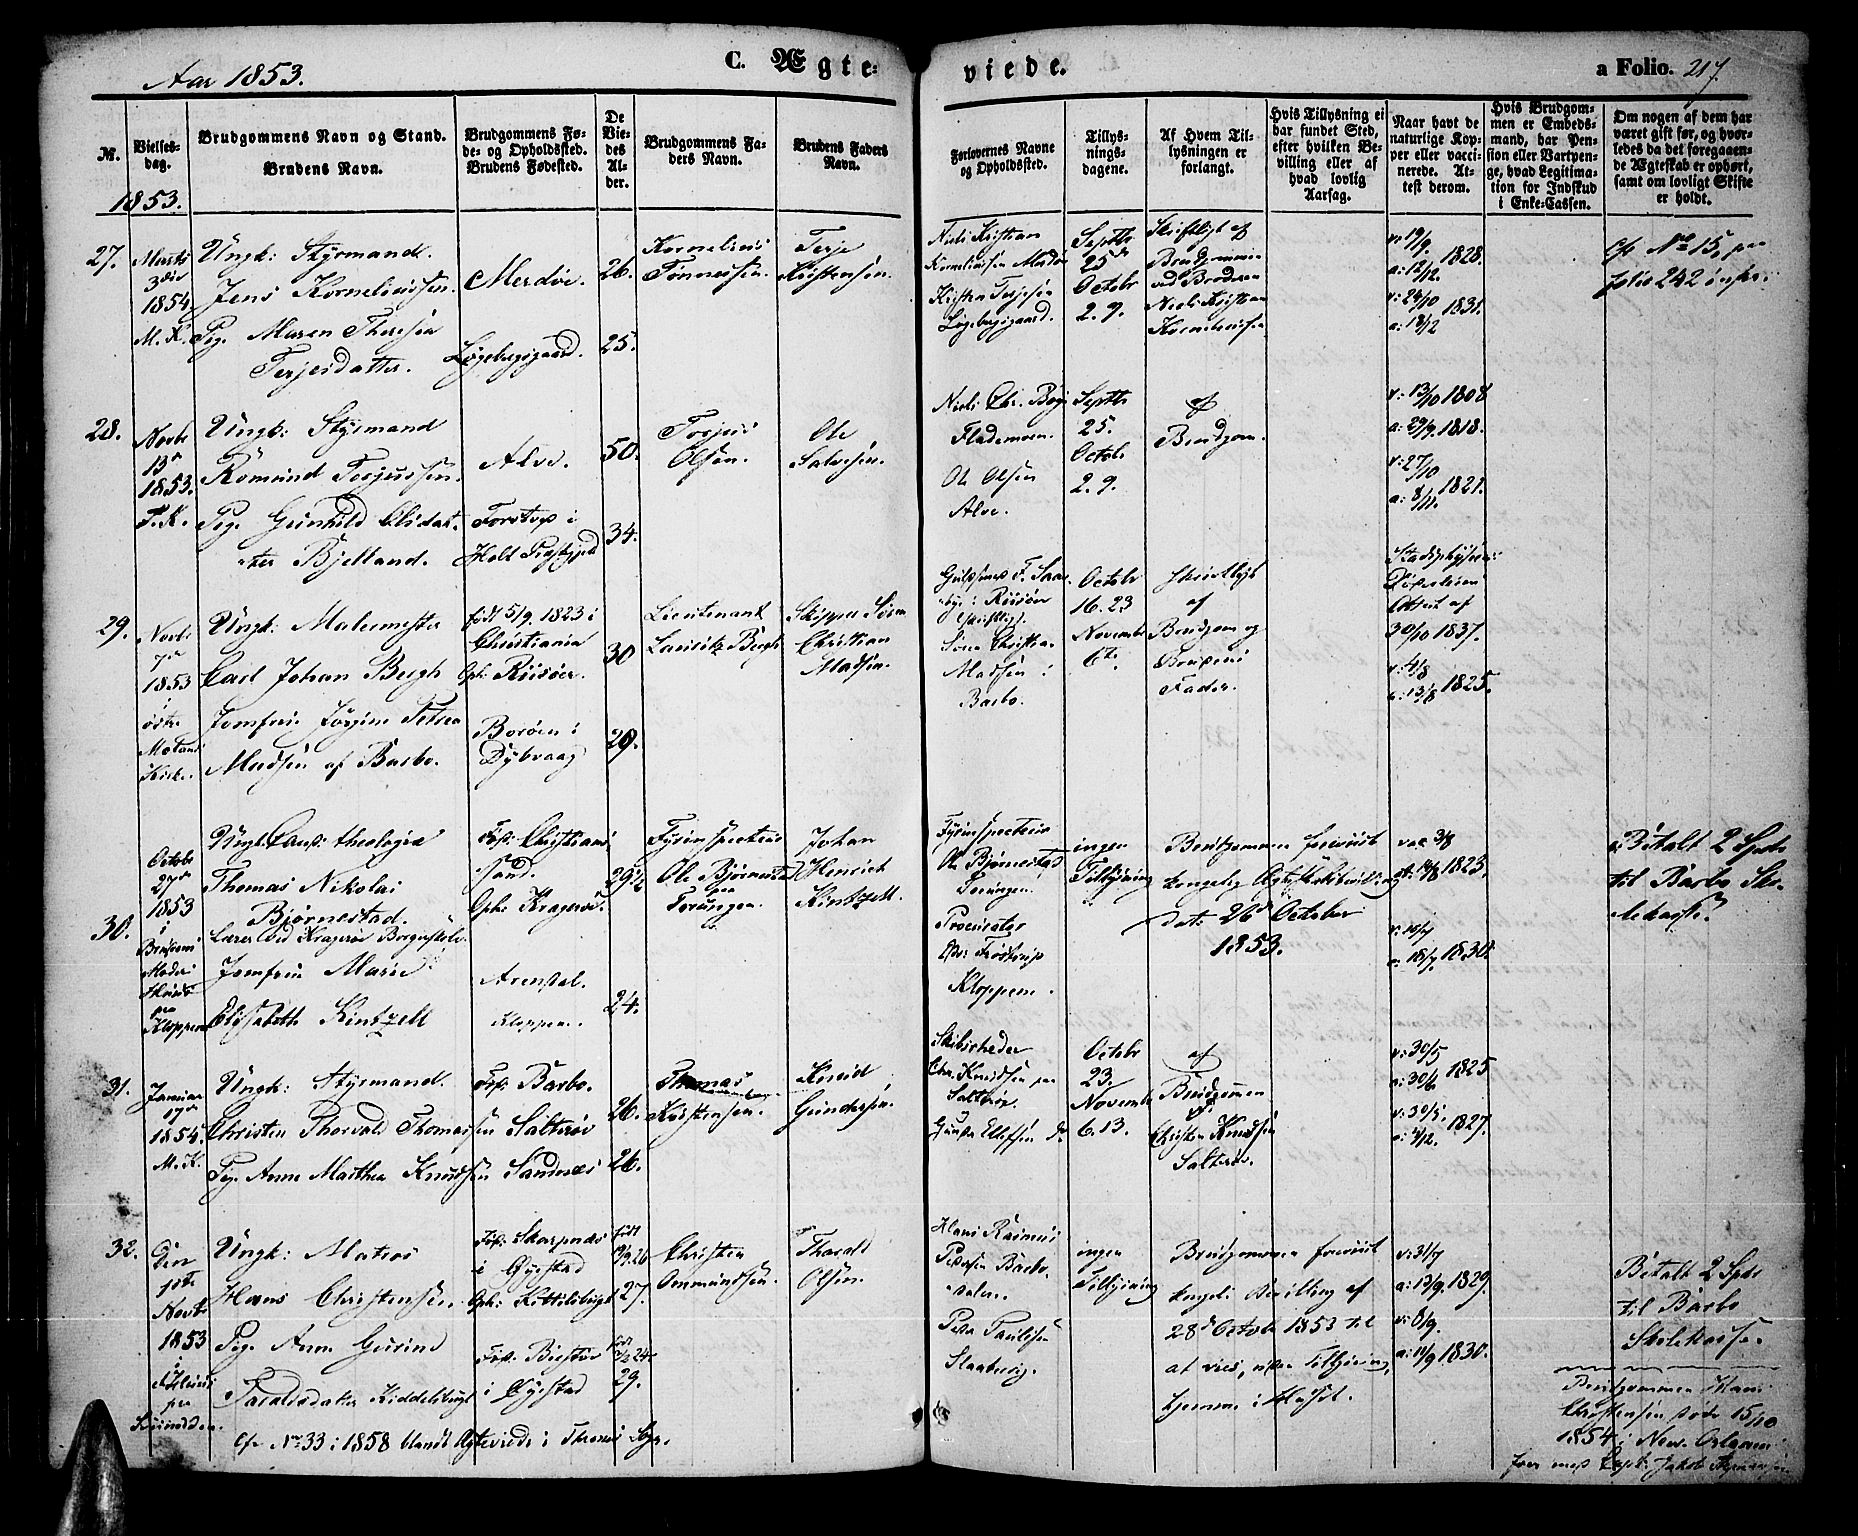 Aar 1853.
C. Ægte-
viede.
a Folio. 217
No.
Vielses-
dag.
Brudgommens Navn og Stand.
Brudens Navn.
Brudgommens Fø-
de- og Opholdssted.
Brudens Fødested.
De
Vie-
des
Al-
der.
Brudgommens Fa-
ders Navn.
Brudens Faders
Navn.
Forlovernes Navne
og Opholdssted.
Tillys-
nings-
dagene.
Af Hvem Til-
lysningen er
forlangt.
Hvis Tillysning ei
har fundet Sted,
efter hvilken Be-
villing eller af
hvad lovlig
Aarsag.
Naar havt de
naturlige Kop-
per eller vacci-
nerede. At-
test derom.
Hvis Brudgom-
men er Embeds-
mand, har Pen-
sion eller Vartpen-
ge, hvad Legitima-
tion for Indskud
i Enke-Cassen.
Om nogen af dem har
været gift før, og hvor-
ledes da det foregaaen-
de Ægteskab er ophørt,
samt om lovligt Skifte
er holdt.
1853.
27.
Marts
3die
1854
M. K.
Ungk: Styrmand.
Jens Korneliussen.
Pig. Maren Theresia
Terjesdatter.
Merdøe.
Løgebergsgaard.
26.
25.
Kornelius
Tønnessen.
Terje
Kristensen.
Niels Kristian
Korneliusen Merdøe
Kristen Terjesen
Løgebergsgaard.
Septbr
25de
Octobr
2. 9.
Skriftligt af
Brudgommen
ved Broderen
Niels Kristian
Korneliussen
v: 19/9
a: 12/12 1828.
v: 24/10
a: 18/12 1831.
cfr No 15, paa
folio 242
28.
Novbr
13de
1853.
T. K.
Ungk: Styrmand
Romund Torjussen.
Pig. Gunhild Olsdat-
ter Bjelland.
Alve.
Holt Præstegjeld
50.
34.
Torjus
Olsen.
Ole
Salvesen.
Niels Chr. Boye
Flademoen.
Ole Olsen
Alve.
Septbr
25.
Octobr
2. 9.
af
Brudgom.
v: 13/10 1808
a: 29/9 1818.
v: 27/10
a: 8/11 1821.
29.
Novbr
7de
1853
i
østre
Kirke.
Ungk: Malermester
Carl Johan Bergh
Jomfrue Jørgine Petrea
Madsen af Barbo.
født 5/9 1823 i
Christiania
Oph: Riisøer.
Borøen i
Dybvaag
30
29.
Lieutenant
Lauritz Bergh
Skipper Søren
Christian
Madsen.
i Riisøer
(skriftlig).
Søren Christian
Madsen i
Barbo.
Octobr
16. 23
Novembr
6te.
Skriftligt
af
Brudgom og
Brudens
Fader.
Attest af
30/10 1837.
v: 4/8
a: 13/8 1825.
30.
Octobr
27de
1853
i
Brudens
Moders
Huus
paa
Kloppene
Ungk. Cand. theologiæ
Thomas Nikolai
Bjørnestad.
Lærer ved Kragerøe Borgerskole.
Jomfrue Marie
Elisabeth Kintzell
Fød: Christian-
sand.
Oph: Kragerøe.
Arendal.
Kloppene.
29 1/2
24.
Fyrinspecteur
Ole Bjørnestad
paa
Torungen.
Johan
Henrich
Kintzell.
Fyrinspecteur
Ole Bjørnestad
Torungen.
Procurator
Kloppene.
ingen
Tillysning
Brudgommen foreviist
kongelig Ægteskabsbevilling
dat: 26de October
1853.
vac 3/8
at: 14/8 1823.
a: 18/7 1830.
Betalt 2 Spdr
til Barbo Sko-
lekasse
31.
Januar
17de
1854.
M. K.
Ungk: Styrmand.
Christen Thorvald Thomassen
Pig. Anne Marthea Knudsen
Fød: Barbo.
Salterøe
Sandnæs
26.
26.
Thomas
Kristensen.
Knud
Gundersen.
Skibsrheder
Chr. Knudsen paa
Salterøe.
Gunder Ellefsen
Octobr
23.
Novembr
6. 13.
af
Brudgommen
Christen Knudsen
Salterøe.
v: 30/5
a: 30/6 1825
v: 30/5.
a: 4/12. 1827.
32.
Den
1ste
Novbr
1853
i
paa
Ungk: Matros
Hans Christensen.
Pig. Anne Gurine
Taraldsdatter Kiddelsbugt
Fød: Skarpnæs
i Øyestad
Oph: Kittelsbugt
Fød:
i Øyestad
født
27.
født
29.
Christen
Ommundsen.
Tharald
Olsen.
Hans Rasmus
Pedersen Barbo-
dalen.
Peder Paulsen
Slaaberg.
ingen
Tillysning
Brudgommen foreviist
kongel: Bevilling af
28de Octobr 1853 til
at vies, uden Tillysning,
hjemme i Huset.
v: 31/7
a: 13/9 1829.
v: 8/9.
a: 11/9 1830.
Betalt 2 Spdr
til Barbo
Skolekasse
Brudgommen Hans
Christensen døde 15/10
1854 i New Orleans
foer med Capt. Jakob
Cfr No 33 i 1858 blandt Ægteviede i Thromø Sogn.